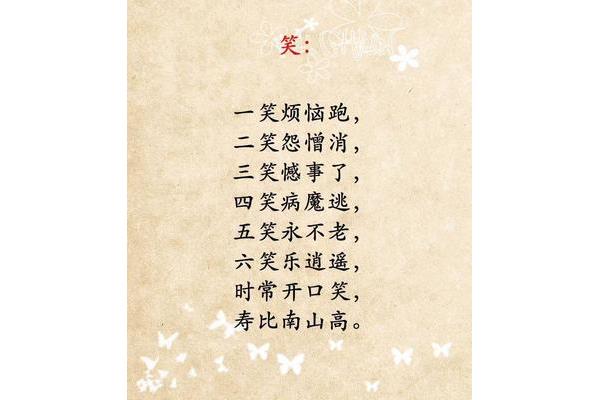 笑：
一笑烦恼跑，
二笑怨憎消，
三笑憾事了，
四笑病魔逃，
五笑永不老，
六笑乐逍遥，
时常开口笑，
寿比南山高。